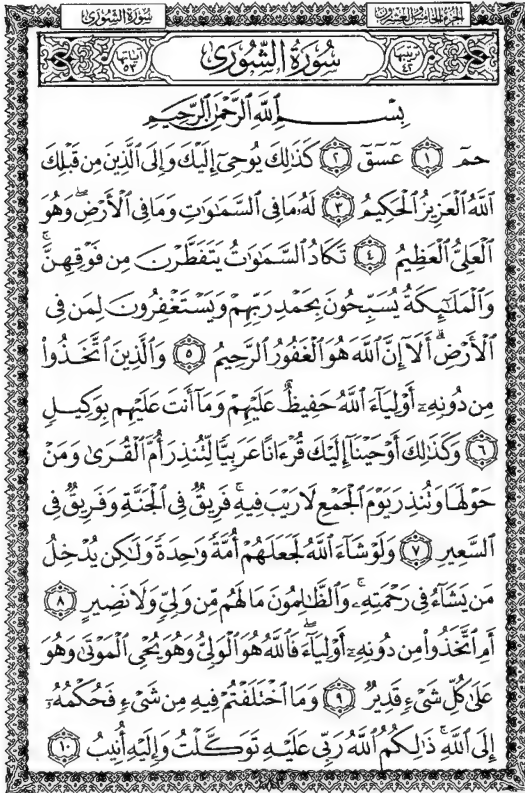 الجزء الخامس والعشرون
سورة الشورى
ترتيبها ٤٢
سُورَةُ الشُّورَىٰ
آياتها ٥٣
بِسْمِ ٱللَّهِ ٱلرَّحْمَٰنِ ٱلرَّحِيمِ
حمٓ ١ عٓسٓقٓ ٢ كَذَٰلِكَ يُوحِىٓ إِلَيْكَ وَإِلَى ٱلَّذِينَ مِن قَبْلِكَ
ٱللَّهُ ٱلْعَزِيزُ ٱلْحَكِيمُ ٣ لَهُۥ مَا فِى ٱلسَّمَٰوَٰتِ وَمَا فِى ٱلْأَرْضِۖ وَهُوَ
ٱلْعَلِىُّ ٱلْعَظِيمُ ٤ تَكَادُ ٱلسَّمَٰوَٰتُ يَتَفَطَّرْنَ مِن فَوْقِهِنَّۚ
وَٱلْمَلَٰٓئِكَةُ يُسَبِّحُونَ بِحَمْدِ رَبِّهِمْ وَيَسْتَغْفِرُونَ لِمَن فِى
ٱلْأَرْضِۗ أَلَآ إِنَّ ٱللَّهَ هُوَ ٱلْغَفُورُ ٱلرَّحِيمُ ٥ وَٱلَّذِينَ ٱتَّخَذُوا۟
مِن دُونِهِۦٓ أَوْلِيَآءَ ٱللَّهُ حَفِيظٌ عَلَيْهِمْ وَمَآ أَنتَ عَلَيْهِم بِوَكِيلٍ
٦ وَكَذَٰلِكَ أَوْحَيْنَآ إِلَيْكَ قُرْءَانًا عَرَبِيًّا لِّتُنذِرَ أُمَّ ٱلْقُرَىٰ وَمَنْ
حَوْلَهَا وَتُنذِرَ يَوْمَ ٱلْجَمْعِ لَا رَيْبَ فِيهِۚ فَرِيقٌ فِى ٱلْجَنَّةِ وَفَرِيقٌ فِى
ٱلسَّعِيرِ ٧ وَلَوْ شَآءَ ٱللَّهُ لَجَعَلَهُمْ أُمَّةً وَٰحِدَةً وَلَٰكِن يُدْخِلُ
مَن يَشَآءُ فِى رَحْمَتِهِۦۚ وَٱلظَّٰلِمُونَ مَا لَهُم مِّن وَلِىٍّ وَلَا نَصِيرٍ ٨
أَمِ ٱتَّخَذُوا۟ مِن دُونِهِۦٓ أَوْلِيَآءَۖ فَٱللَّهُ هُوَ ٱلْوَلِىُّ وَهُوَ يُحْىِ ٱلْمَوْتَىٰ وَهُوَ
عَلَىٰ كُلِّ شَىْءٍ قَدِيرٌ ٩ وَمَا ٱخْتَلَفْتُمْ فِيهِ مِن شَىْءٍ فَحُكْمُهُۥٓ
إِلَى ٱللَّهِۚ ذَٰلِكُمُ ٱللَّهُ رَبِّى عَلَيْهِ تَوَكَّلْتُ وَإِلَيْهِ أُنِيبُ ١٠